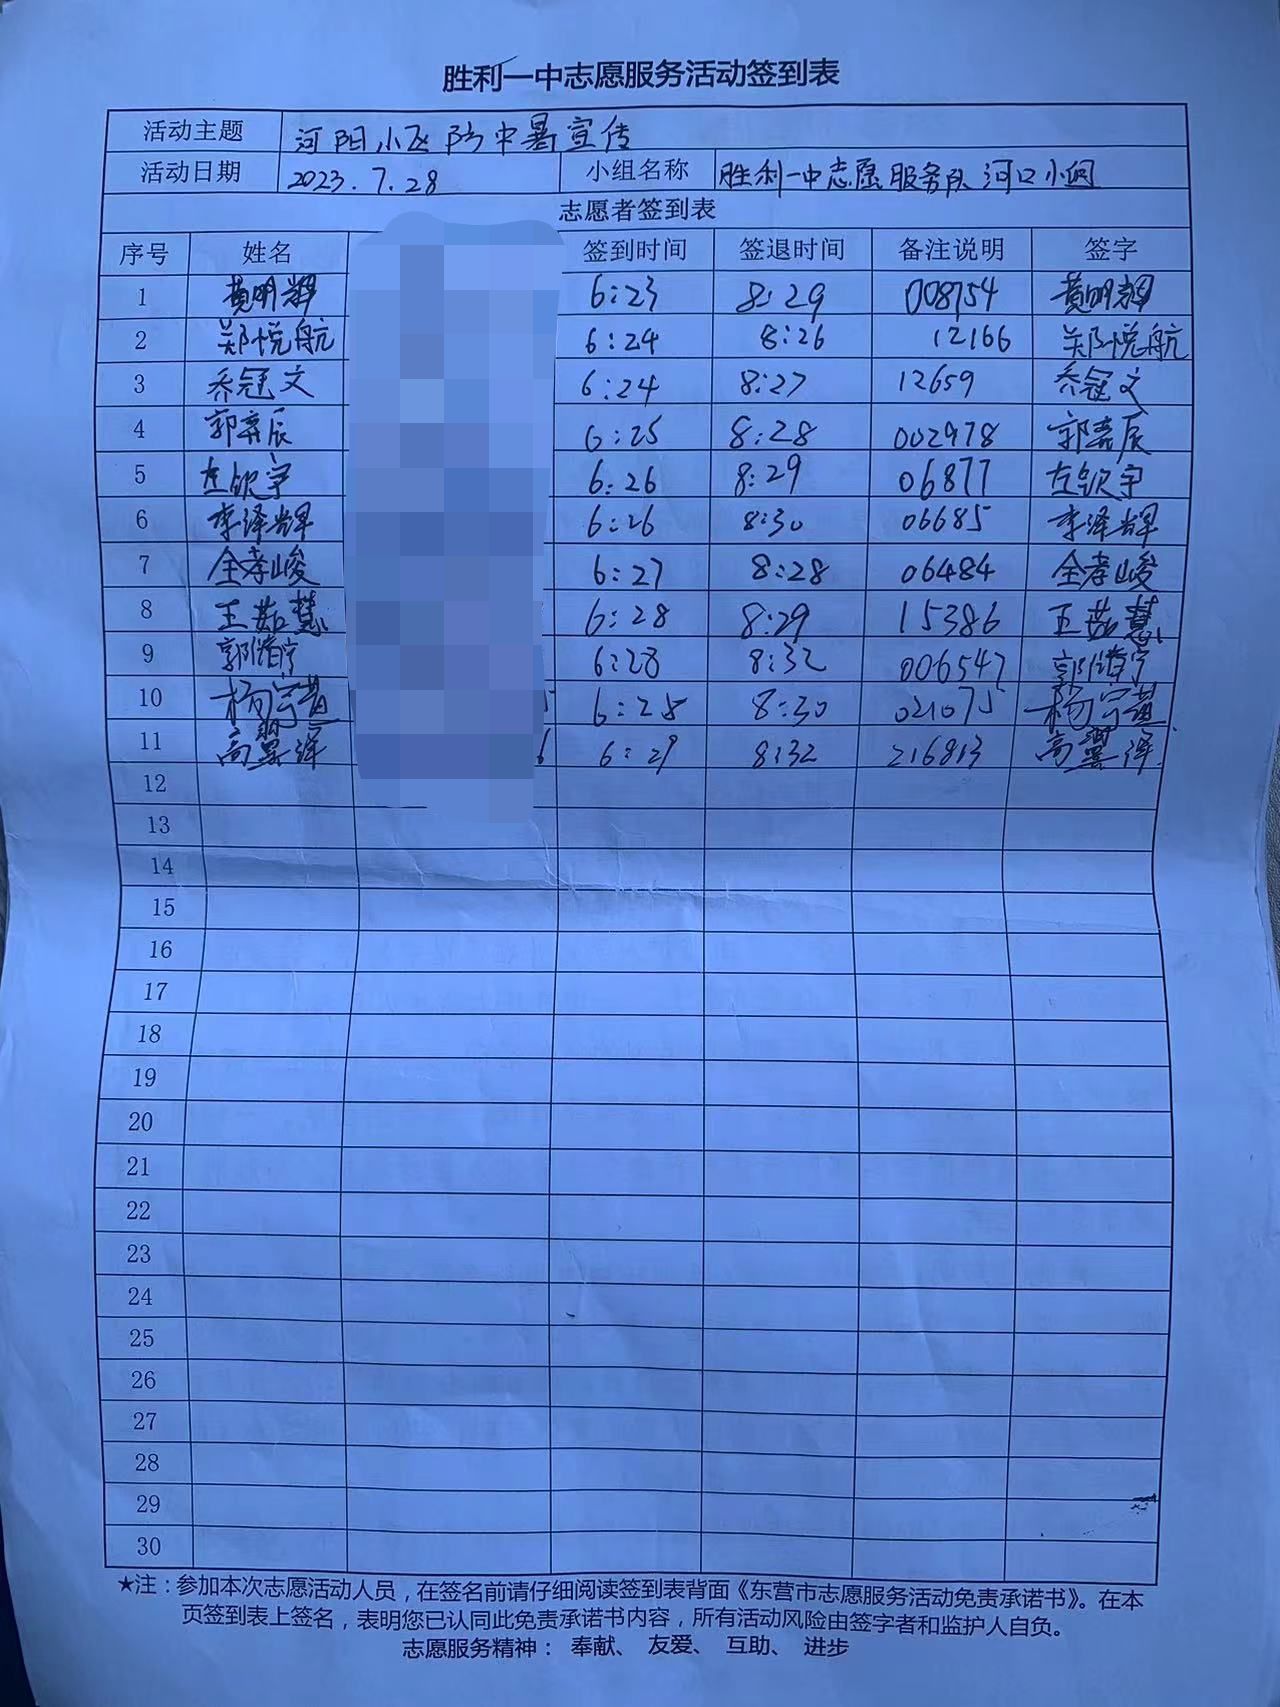 胜利一中志愿服务活动签到表
活动主题 河阳小区防中暑宣传
活动日期 2023.7.28 小组名称 胜利一中志愿服务队河口小组
志愿者签到表
序号 姓名 签到时间 签退时间 备注说明 签字
1 黄明辉 6:23 8:29 008754 黄明辉
2 郑悦航 6:24 8:26 12166 郑悦航
3 乔冠文 6:24 8:27 12659 乔冠文
4 郭弈辰 6:25 8:28 002978 郭弈辰
5 左钦宇 6:26 8:29 06877 左钦宇
6 李泽辉 6:26 8:30 06685 李泽辉
7 全孝峻 6:27 8:28 06484 全孝峻
8 王茹慧 6:28 8:29 15386 王茹慧
9 6:28 8:32 006547
10 6:28 8:30 021075
11 高翼泽 6:29 8:32 216813 高翼泽
12
13
14
15
16
17
18
19
20
21
22
23
24
25
26
27
28
29
30
★注：参加本次志愿活动人员，在签名前请仔细阅读签到表背面《东营市志愿服务活动免责承诺书》。在本
页签到表上签名，表明您已认同此免责承诺书内容，所有活动风险由签字者和监护人自负。
志愿服务精神： 奉献、 友爱、 互助、 进步